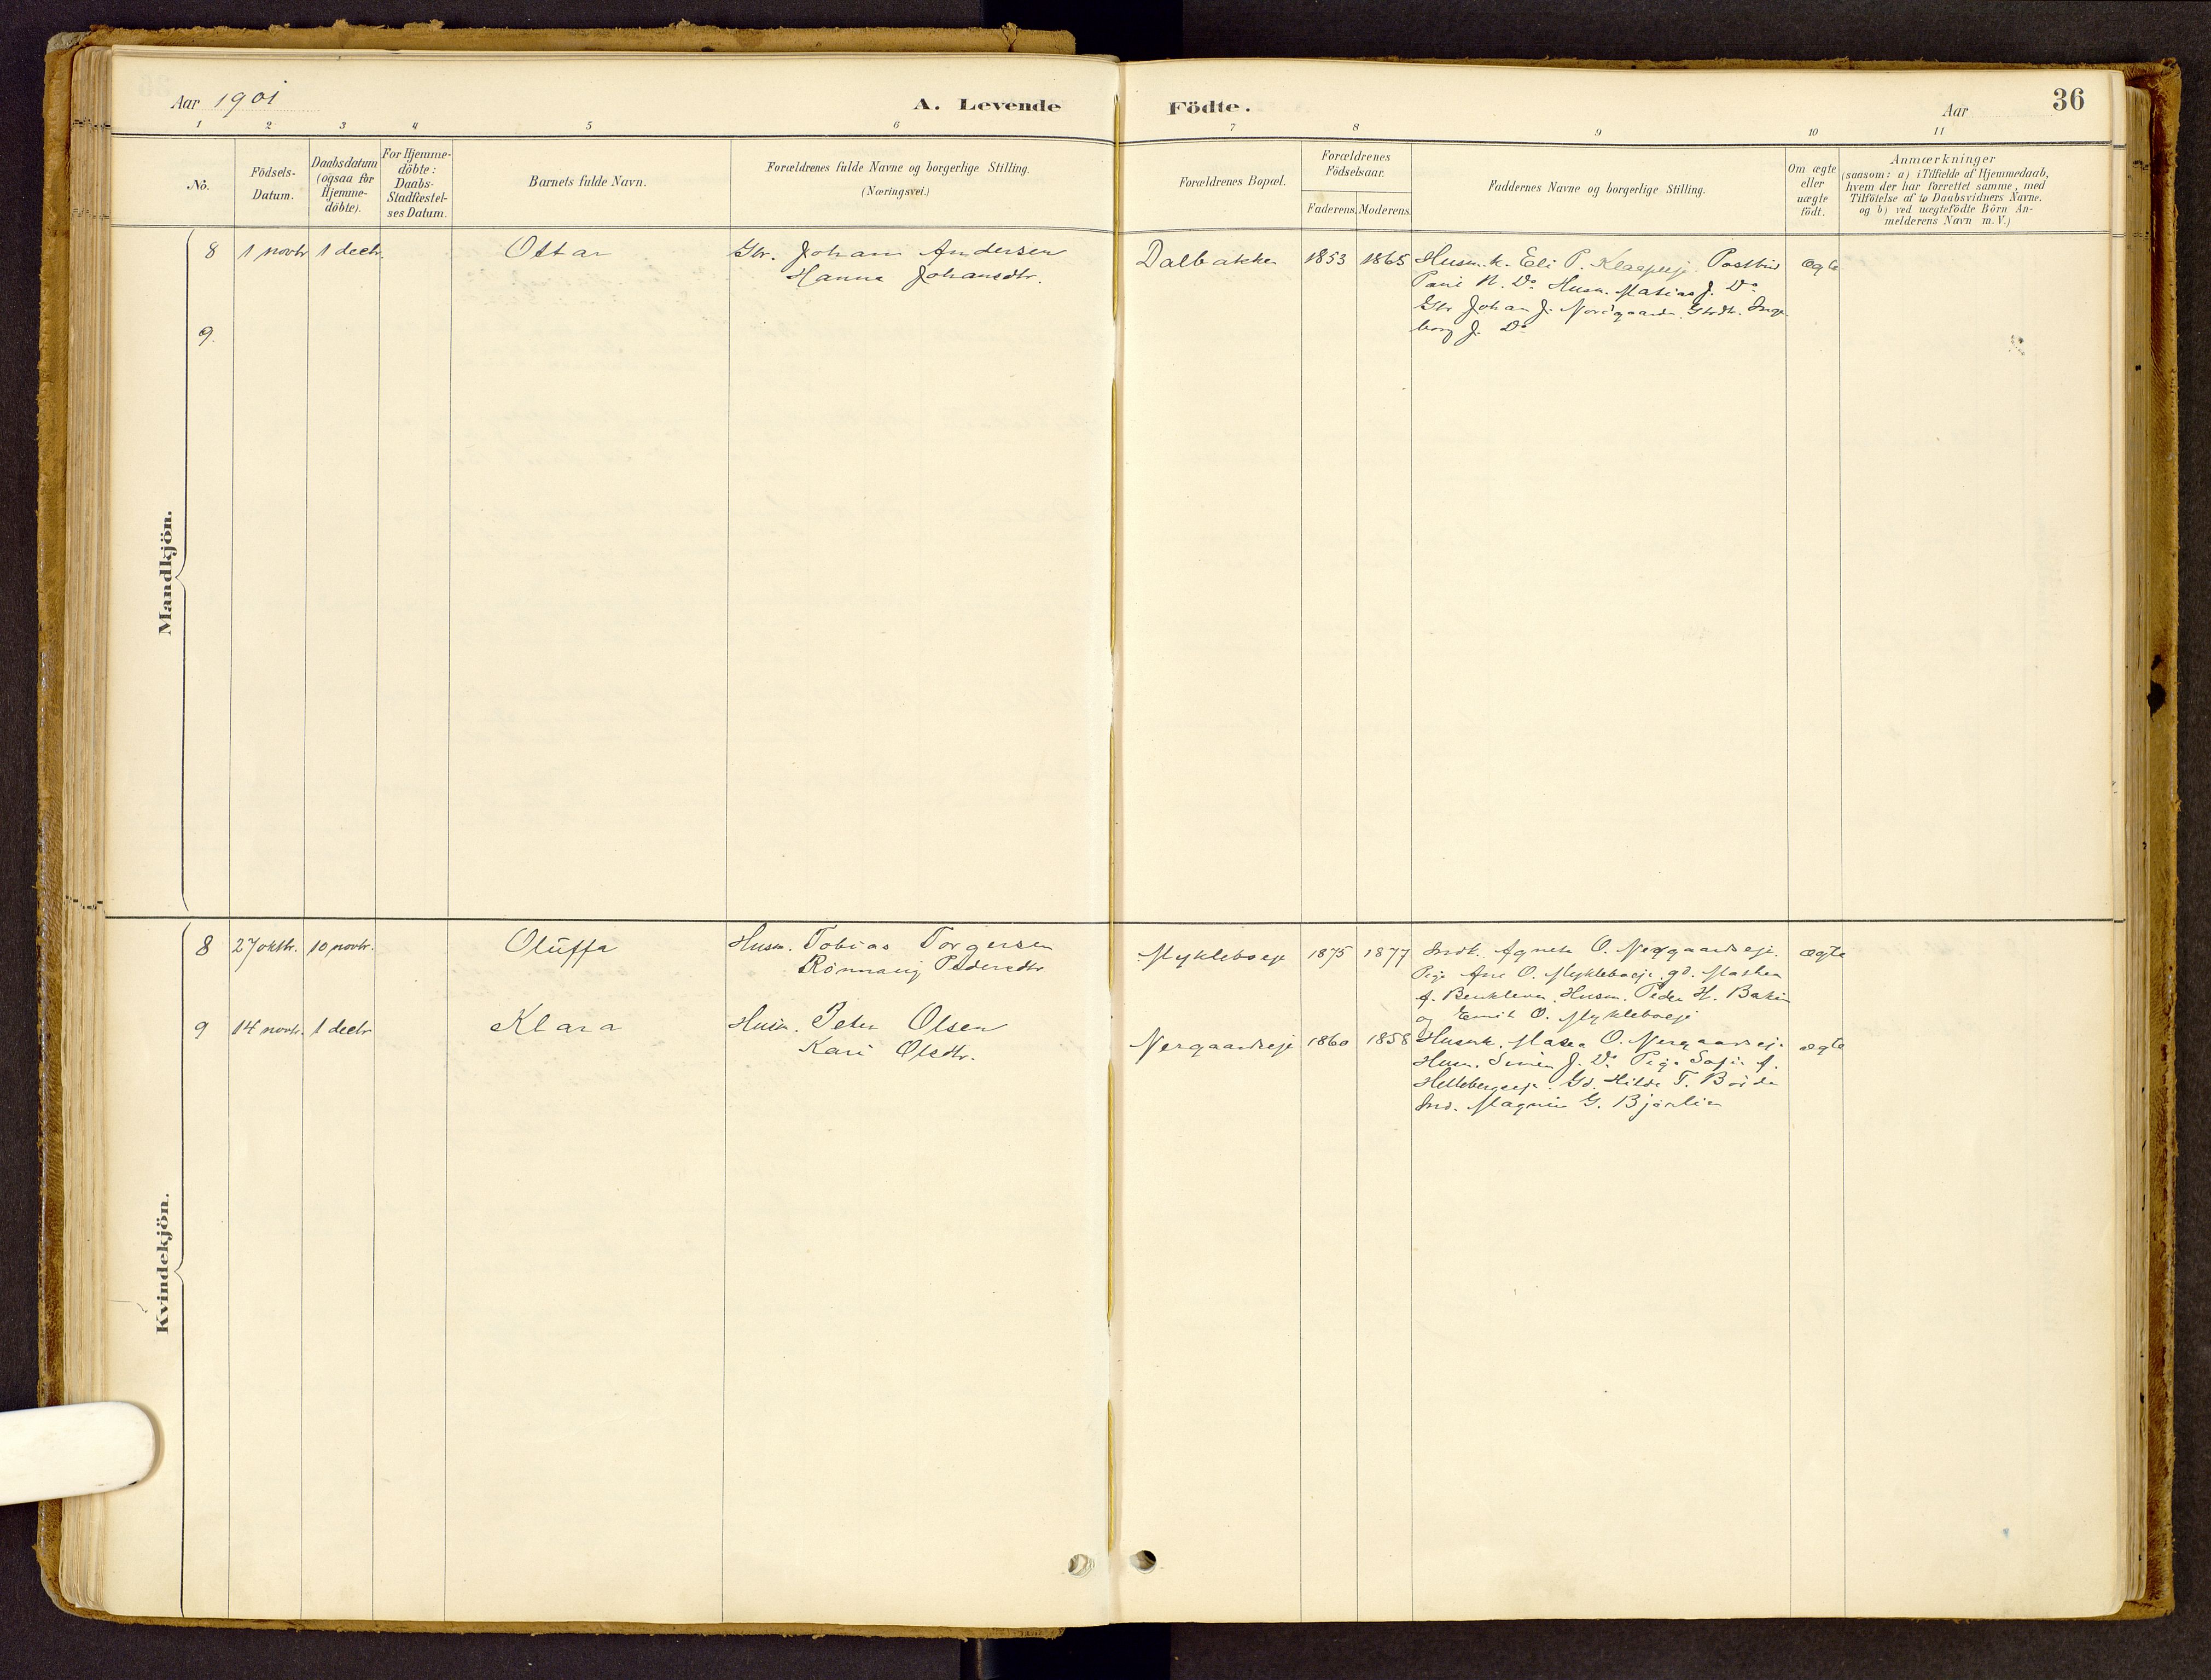 Aar 1901
A. Levende Födte.
Aar
36
1 2 3 4 5 6 7 8 9 10 11
No.
Födsels-Datum.
Daabsdatum (ogsaa for Hjemme-döbte).
For Hjemme-döbte: Daabs-Stadfæstel-ses Datum.
Barnets fulde Navn.
Forældrenes fulde Navne og borgerlige Stilling.
(Næringsvei.)
Forældrenes Bopæl.
Forældrenes Födselsaar.
Faderens. Moderens.
Faddernes Navne og borgerlige Stilling.
Om ægte eller uægte födt.
Anmærkninger
(saasom: a) i Tilfælde af Hjemmedaab,
hvem der har forrettet samme, med
Tilföielse af to Daabsvidners Navne.
og b) ved uægtefödte Börn An-
melderens Navn m.V.)
Mandkjön.
8 1 novbr 1 decbr. Ottar Gbr. Johan Andersen Dalbakken 1853 1865 Husm.k. Eli P. Postbud ægte
Hanna Johansdtr. N. Do Husm. Matias J. Do
Gbr Johan J. Nordgaarden. Gbrdtr. Inge-
borg J. Do
9.
Kvindekjön.
8 27 oktbr. 10 novbr. Oluffa Husm. Tobias Torgersen Mykleboeje 1875 1877 Indk. Agnete O. Nergaardseje. ægte
Rönnaug Pedersdtr Pige Ane O. Mykleboeje. gd. Mathea
A. Husm. Peder H. Bakin
og Emil O. Mykleboeje
9 14 novbr. 1 decbr Klara Husm. Peter Olsen Nergaardseje 1860 1858 Husmk. Masea O. Nergaardseje ægte
Kari Olsdtr. Husm. Simen J. Do Pige Sofie A.
Hellebergseje. Gd. Hilda T.
Ind. Magnus G. Björlien